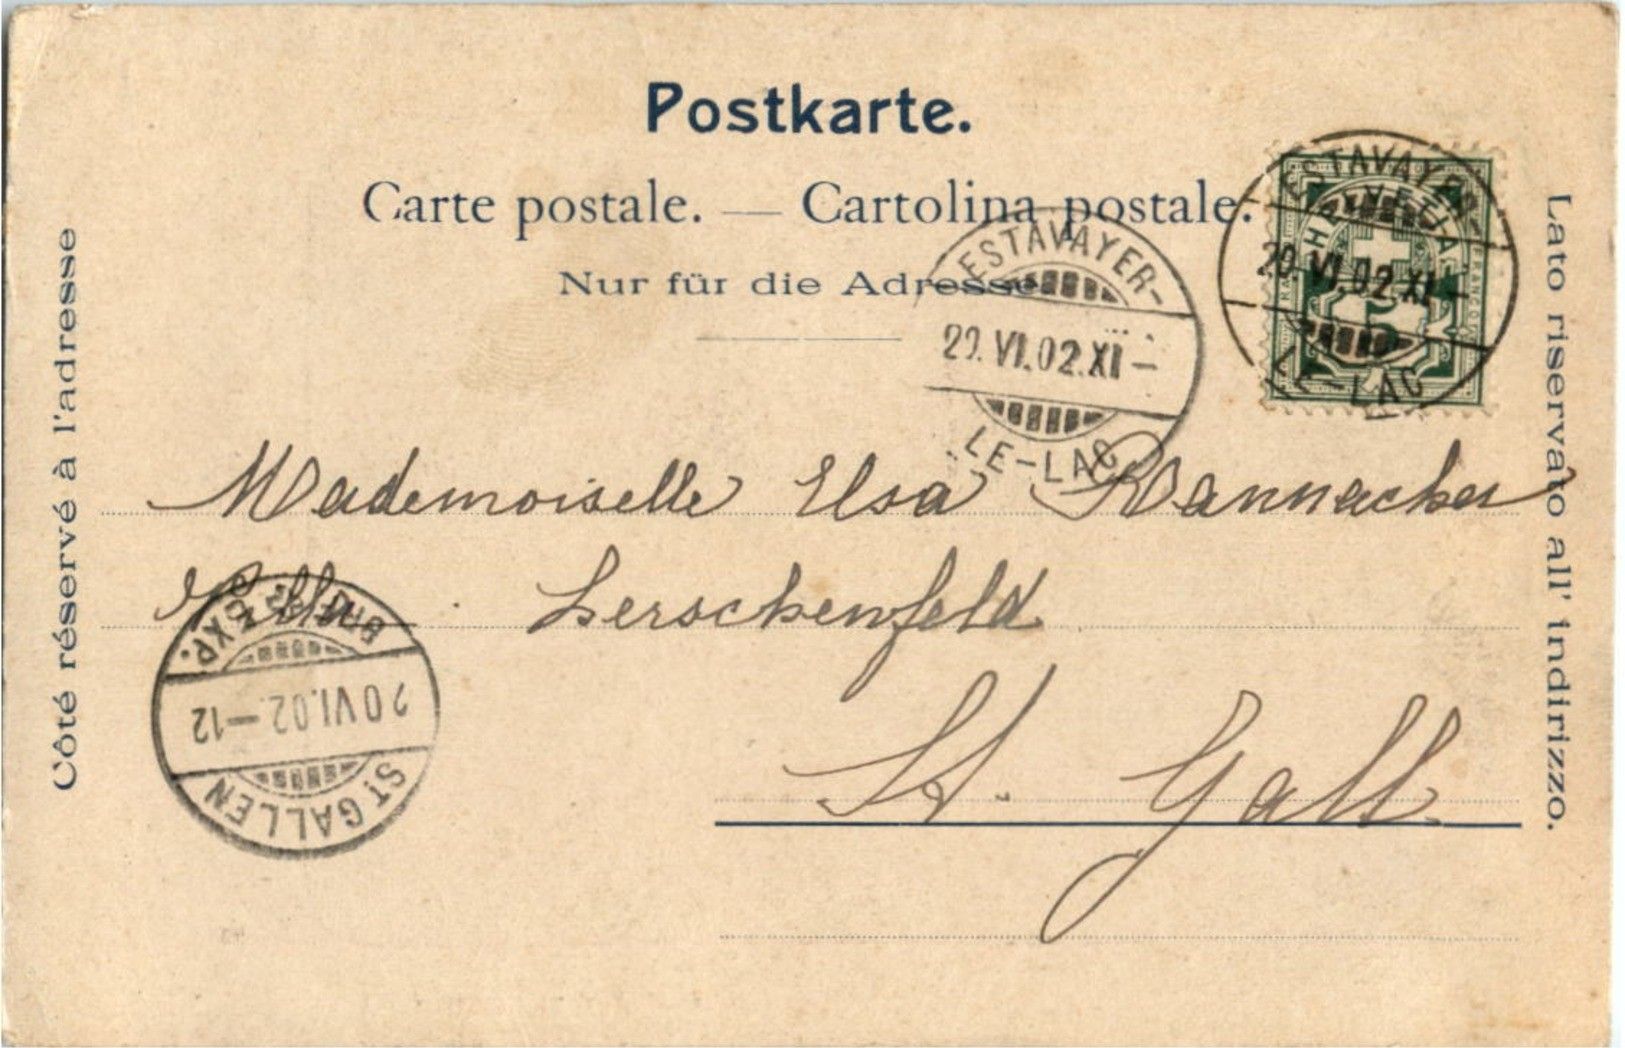 Postkarte.
Carte postale. — Cartolina postale.
Nur für die Adresse
Côté réservé à l'adresse
Lato riservato all' indirizzo.
ESTAVAYER-
20.VI.02.XI-
LE-LAC
HELVETIA
FRANCO
5
ESTAVAYER-
20.VI.02.XI-
LE-LAC
Mademoiselle Elsa Wannacher
Villa Lerschenfeld
St. Gall.
ST. GALLEN
20 VI.02.-12
BRF. EXP.